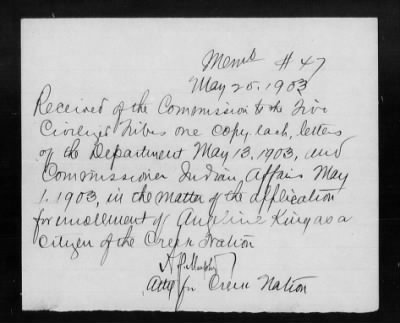 Mem # 47
May 25. 1903
Received of the Commission to the Five
Civilized Tribes one copy each, letters
of the Department May 13. 1903, and
Commissioner Indian Affairs May
1. 1903, in the matter of the application
for enrollment of Angeline King as a
citizen of the Creek Nation
Atty for Creek Nation